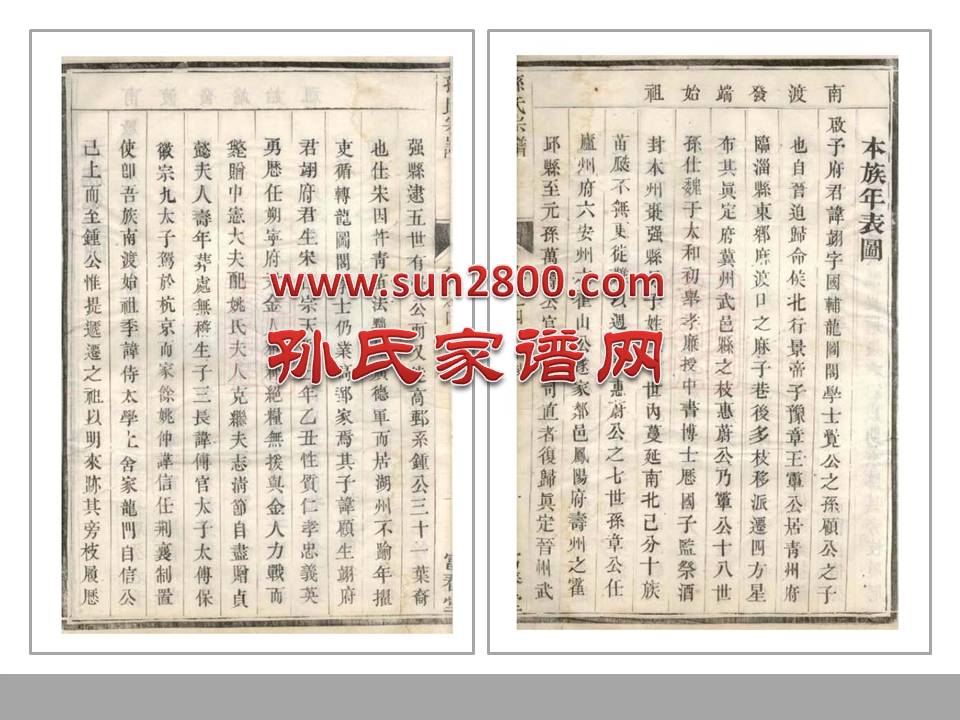 南渡發端始祖
本族年表圖
啟予府君諱翊字國輔龍圖閣學士覺公之孫頠公之子
也自晉迫歸命候北行景帝子豫章王公居青州府
臨淄縣東鄉席渡口之麻子巷後多枝移派遷四方星
布其眞定府冀州武邑縣之枝惠蔚公乃公十八世
孫仕魏于太和初舉孝廉授中書博士歷國子監祭酒
封本州棗强縣子姓世內蔓延南北已分十族
苗不無東徙以週惠蔚公之七世孫章公仕
廬州府六安州霍山公遂家鄰邑鳳陽府壽州之雀
邱縣至元孫萬公官司直者復歸眞定晉州武
孫氏宗譜
强縣逮五世有公而又高郵系鍾公三十一葉裔
也仕宋因青苗法德軍而居湖州不踰年擢
吏循轉龍圖閣學士仍業高郵家焉其子諱頠生翊府
君翊府君生宋宗天年乙丑性質仁孝忠義英
勇歷任朔寧府金人絕糧無援與金人力戰而
斃贈中憲大夫配姚氏夫人克繼夫志清節自盡贈貞
懿夫人壽年葬處無稽生子三長諱傅官太子太傅保
徽宗九太子駕於杭京而家餘姚仲諱信任荆襄制置
使卽吾族南渡始祖季諱侍太學上舍家龍門自信公
已上而至鍾公惟提遞遷之祖以明來跡其旁枝履歷
富春堂
www.sun2800.com
孙氏家谱网